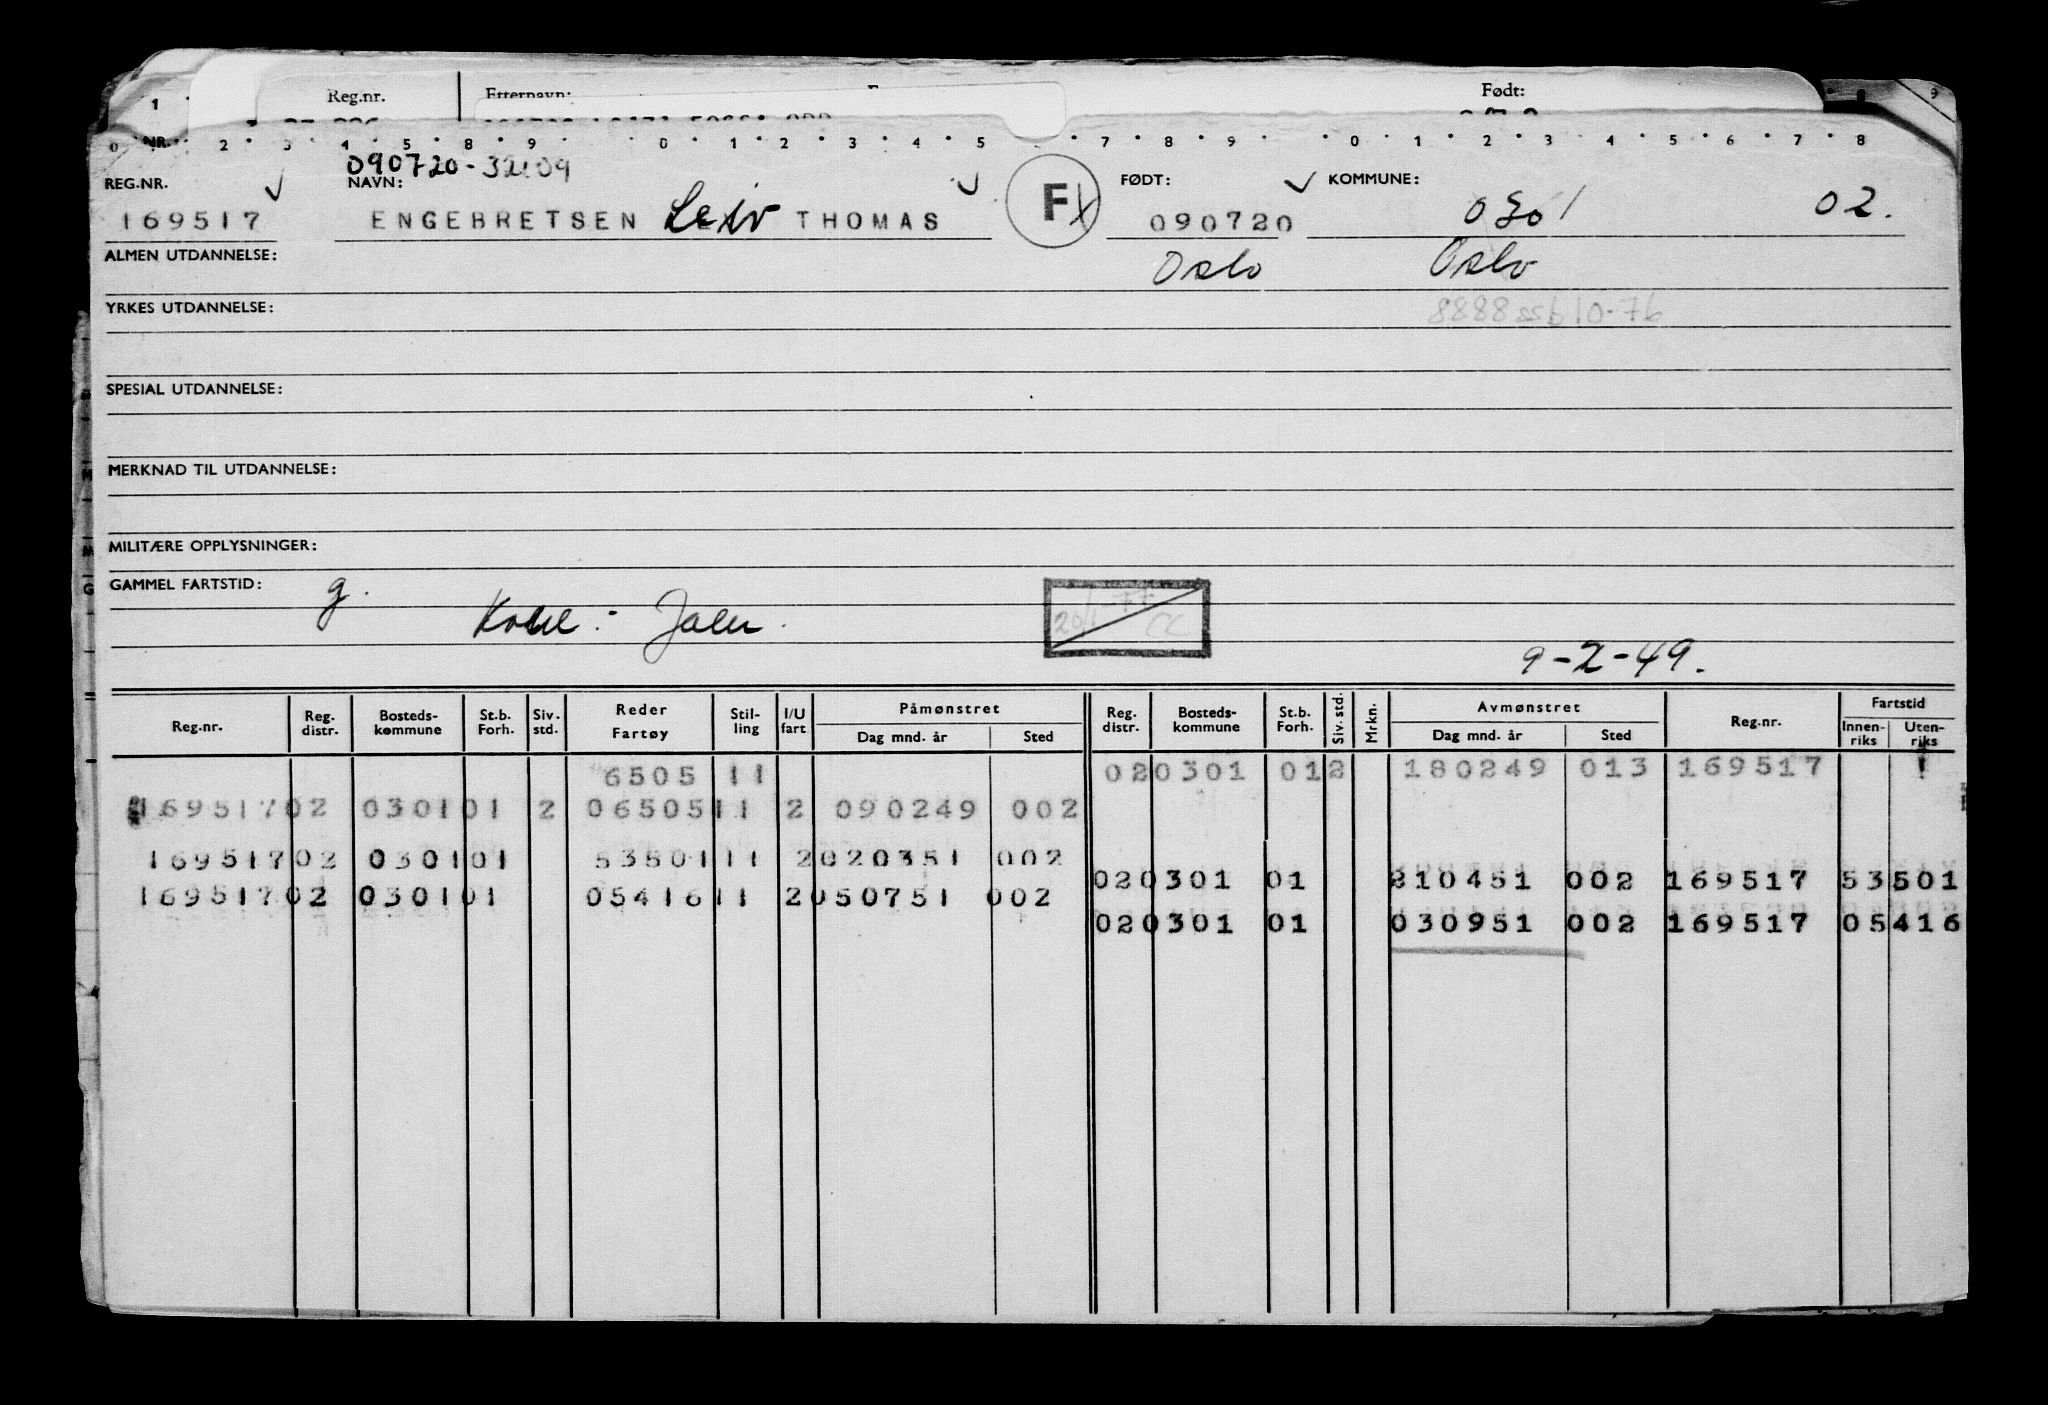 1 Reg.nr. Etternavn: Født: 9
NR. 2 3 4 5 8 9 0 1 2 3 4 5 7 8 9 0 1 2 3 4 5 6 7 8
090720-32109
REG.NR. NAVN: FØDT: KOMMUNE:
169517 ENGEBRETSEN Leiv THOMAS F 090720 0301 02.
ALMEN UTDANNELSE: Oslo Oslo
YRKES UTDANNELSE:
SPESIAL UTDANNELSE:
MERKNAD TIL UTDANNELSE:
MILITÆRE OPPLYSNINGER:
GAMMEL FARTSTID: g.
20/1-77 CC
9-2-49.
Reg.nr. Reg. distr. Bosteds-kommune St.b. Forh. Siv. std. Reder Fartøy Stil-ling I/U fart Påmønstret Dag mnd. år Sted Reg. distr. Bosteds-kommune St.b. Forh. Siv. std. Mrkn. Avmønstret Dag mnd. år Sted Reg.nr. Fartstid Innen-riks Uten-riks
6505 11 020301 012 180249 013 169517
16951702 030101 2 0650511 2 090249 002
16951702 030101 5350111 2020351 002
020301 01 210451 002 169517 53501
16951702 030101 0541611 2050751 002
020301 01 030951 002 169517 05416